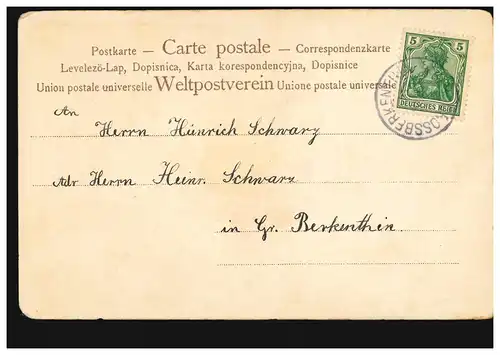 Postkarte – Carte postale – Correspondenzkarte
Levelező-Lap, Dopisnica, Karta korespondencyjna, Dopisnice
Union postale universelle Weltpostverein Unione postale universale
5 5
DEUTSCHES REICH
An
Herrn Hinrich Schwarz
Adr Herrn Heinr. Schwarz
in Gr. Berkenthin.